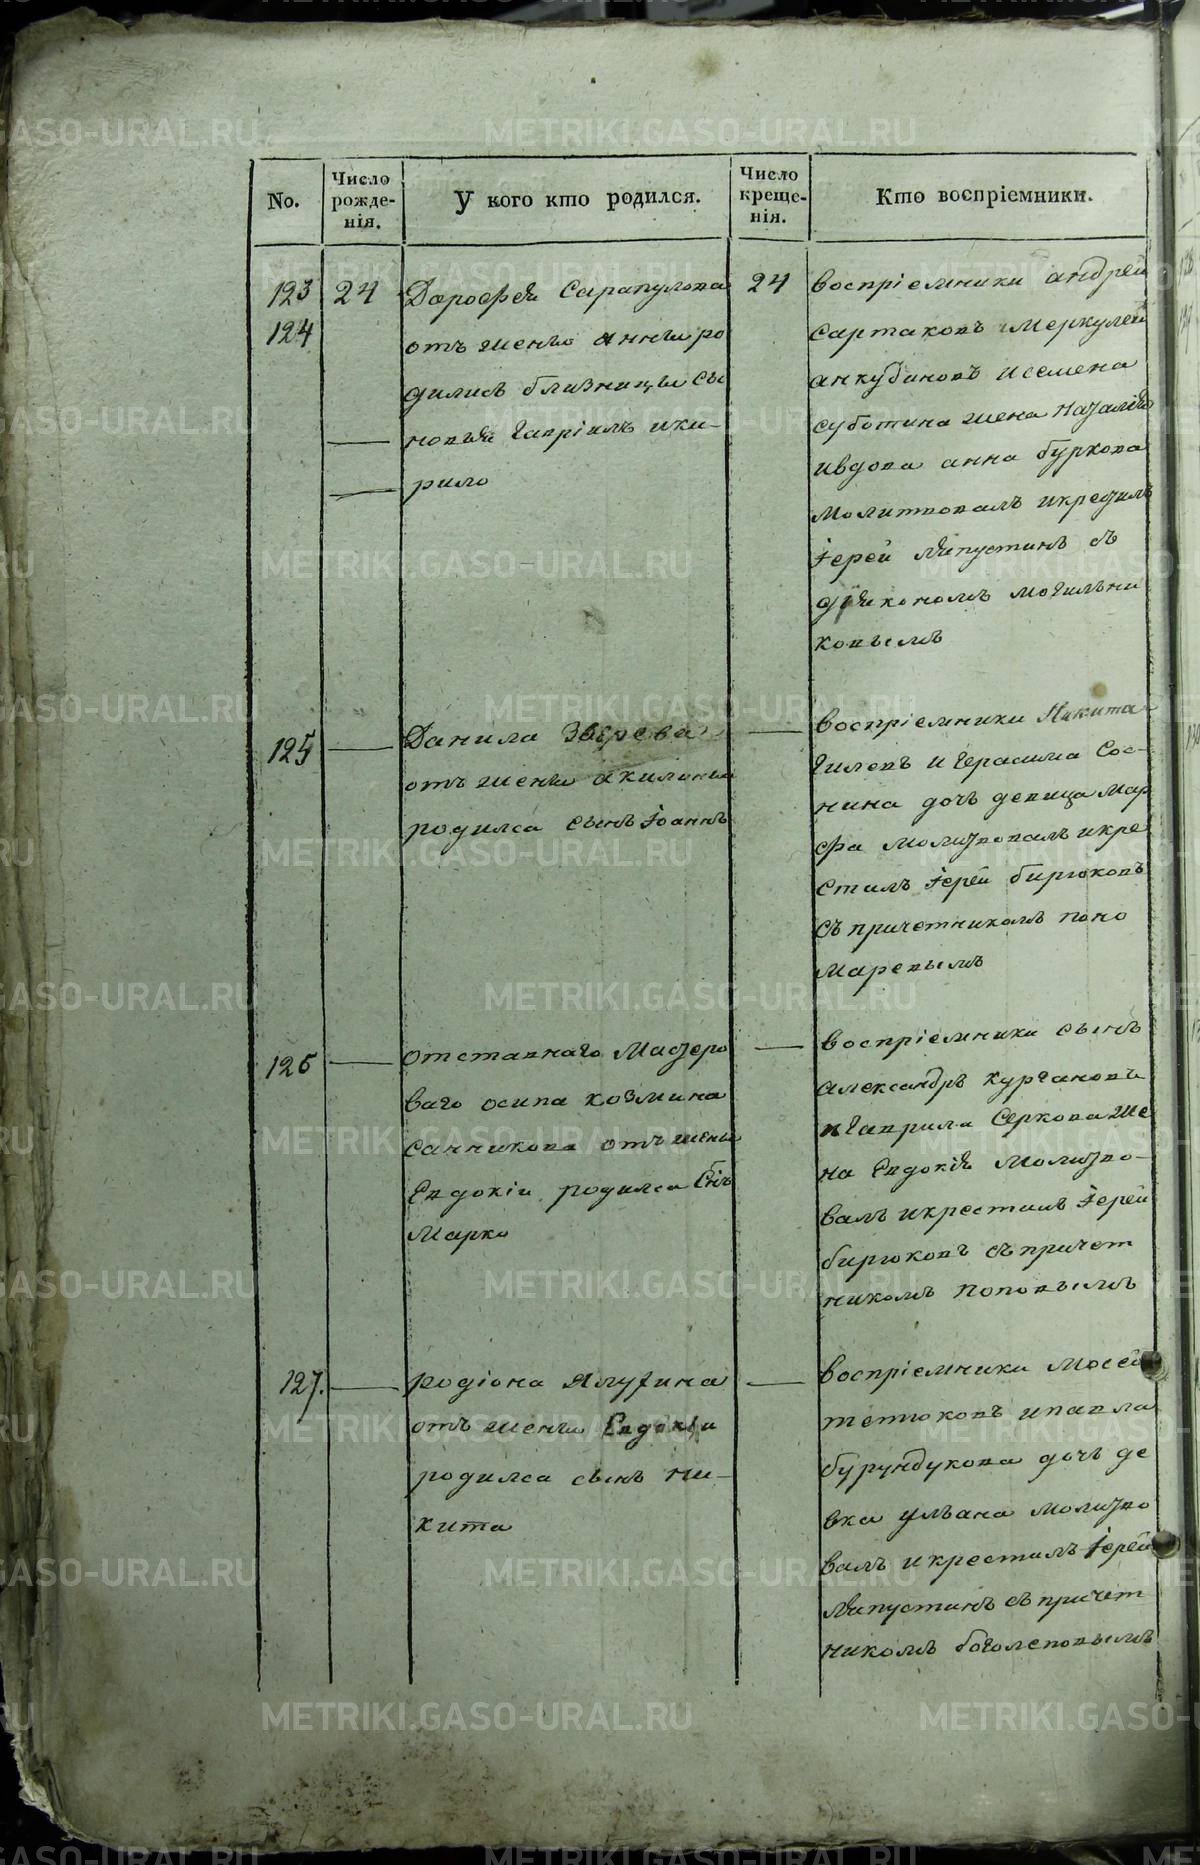 No.
Число рожде- нія.
У кого кто родился.
Число креще- нія.
Кто воспріемники.
123 24
124
Дорофѣя Сарапулова
отъ жены анны ро
дились близницы сы
новья гавріилъ ики-
рило
24
воспріемники андрей
сартаковъ имеркулей
анкудиновъ исемена
суботина жена Наталия
ивдова анна буркова
молитвовалъ икрестилъ
Іерей Ляпустинъ съ
діякономъ могильни
ковымъ
125
Данила Зверева
отъ жены акилины
родился сынъ Іоаннъ
воспріемники Никита
гилевъ и герасима Сос-
нина дочь девица мар
фа молитвовалъ икре
стилъ Іерей бирюковъ
съ причетникомъ поно
маревымъ
126
отставнаго Мастеро
ваго осипа козмина
санникова отъ жены
Евдокіи родился Снъ
Марко
воспріемники сынъ
александръ кургановъ
и гаврила Серкова же
на Евдокія Молитво-
валъ икрестилъ Іерей
бирюковъ съ причет
никомъ поповымъ
127.
родіона Ялутина
отъ жены Евдокіи
родился сынъ ни-
кита
воспріемники Моисей
тетюковъ ипавла
бурундукова дочь де
вка ульяна молитво
валъ и крестилъ Іерей
Ляпустинъ съ причет
никомъ боголеповымъ
METRIKI.GASO-URAL.RU